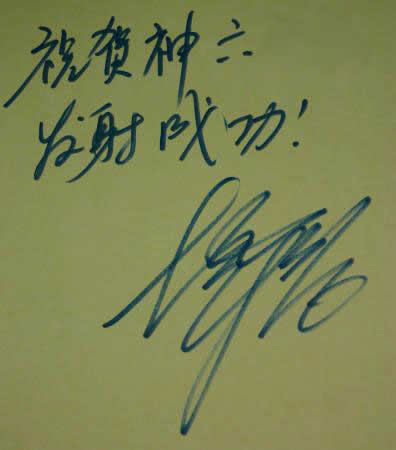 祝贺神六
发射成功！